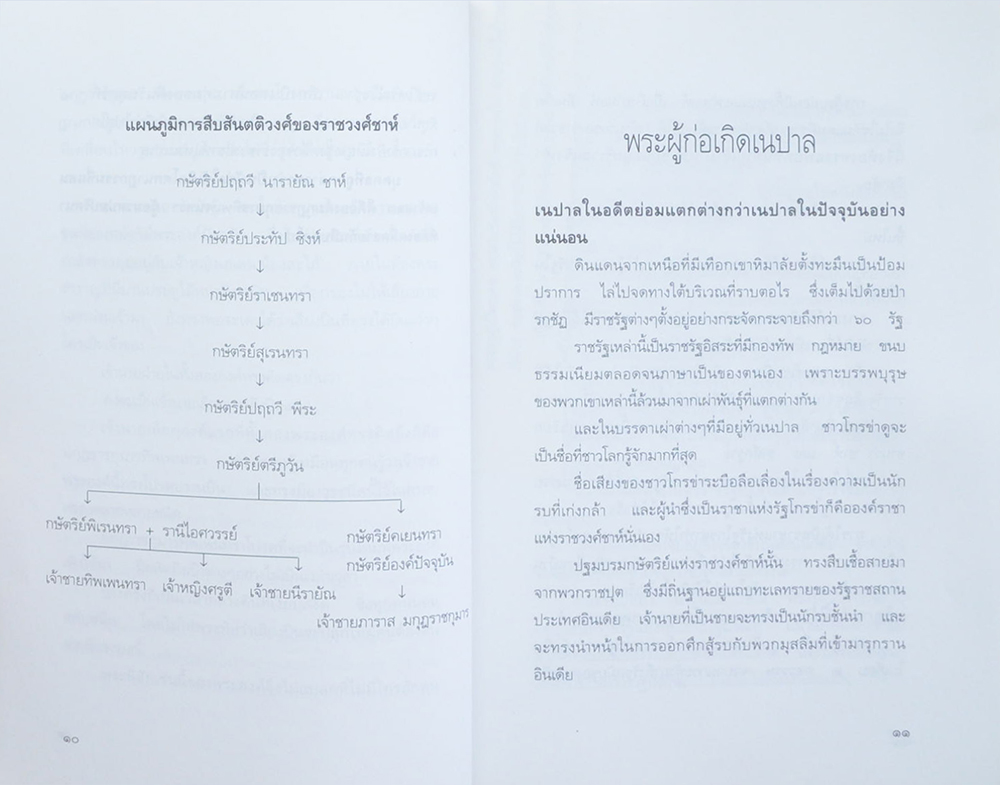 แผนภูมิการสืบสันตติวงศ์ของราชวงศ์ชาห์
กษัตริย์ปฤถวี นารายัณ ชาห์
กษัตริย์ประทัป ซิงห์
กษัตริย์ราเชนทรา
กษัตริย์สุเรนทรา
กษัตริย์ปฤถวี พีระ
กษัตริย์ตรีภูวัน
กษัตริย์พิเรนทรา + รานีไอศวรรย์
กษัตริย์คเยนทรา
กษัตริย์องค์ปัจจุบัน
เจ้าชายทิพเพนทรา เจ้าหญิงศรูตี เจ้าชายนีรายัณ
เจ้าชายภาราส มกุฎราชกุมาร
๑๐
พระผู้ก่อเกิดเนปาล
เนปาลในอดีตย่อมแตกต่างกว่าเนปาลในปัจจุบันอย่าง
แน่นอน
ดินแดนจากเหนือที่มีเทือกเขาหิมาลัยตั้งทะมึนเป็นป้อม
ปราการ ไล่ไปจดทางใต้บริเวณที่ราบตอไร ซึ่งเต็มไปด้วยป่า
รกชัฏ มีราชรัฐต่างๆตั้งอยู่อย่างกระจัดกระจายถึงกว่า ๖๐ รัฐ
ราชรัฐเหล่านี้เป็นราชรัฐอิสระที่มีกองทัพ กฎหมาย ขนบ
ธรรมเนียมตลอดจนภาษาเป็นของตนเอง เพราะบรรพบุรุษ
ของพวกเขาเหล่านี้ล้วนมาจากเผ่าพันธุ์ที่แตกต่างกัน
และในบรรดาเผ่าต่างๆที่มีอยู่ทั่วเนปาล ชาวโกรข่าดูจะ
เป็นชื่อที่ชาวโลกรู้จักมากที่สุด
ชื่อเสียงของชาวโกรข่าระบือลือเลื่องในเรื่องความเป็นนัก
รบที่เก่งกล้า และผู้นำซึ่งเป็นราชาแห่งรัฐโกรข่าก็คือองค์ราชา
แห่งราชวงศ์ชาห์นั่นเอง
ปฐมบรมกษัตริย์แห่งราชวงศ์ชาห์นั้น ทรงสืบเชื้อสายมา
จากพวกราชปุต ซึ่งมีถิ่นฐานอยู่แถบทะเลทรายของรัฐราชสถาน
ประเทศอินเดีย เจ้านายที่เป็นชายจะทรงเป็นนักรบชั้นนำ และ
จะทรงนำหน้าในการออกศึกสู้รบกับพวกมุสลิมที่เข้ามารุกราน
อินเดีย
๑๑